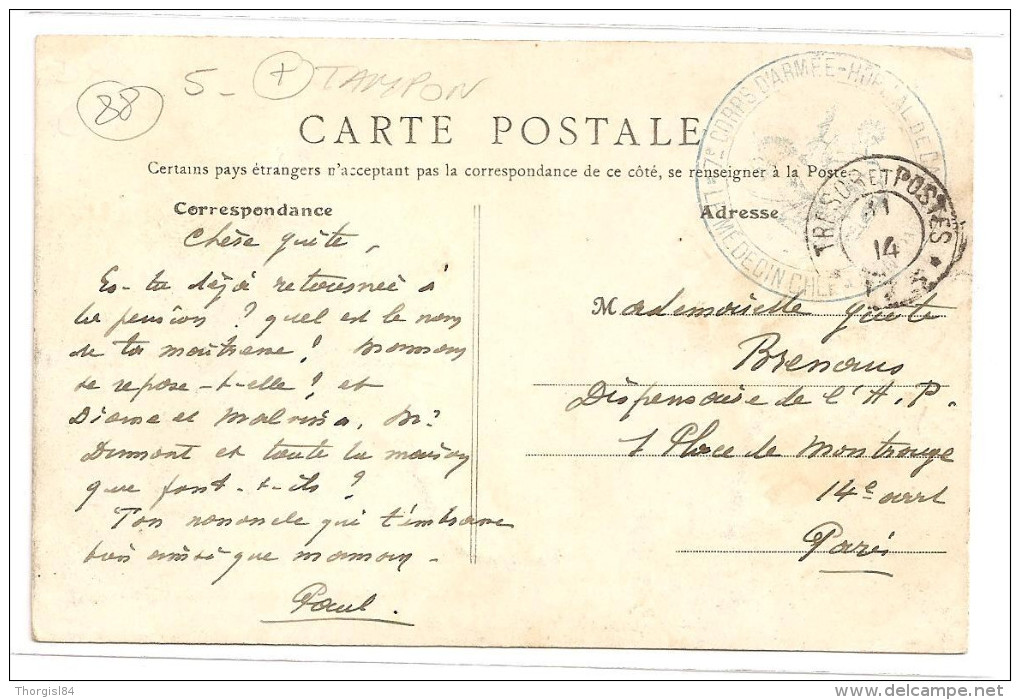 88
5 - + TAMPON
CARTE POSTALE
Certains pays étrangers n'acceptant pas la correspondance de ce côté, se renseigner à la Poste.
Correspondance
Adresse
7e CORPS D'ARMÉE - HÔPITAL DE
LE MÉDECIN CHEF
TRESOR ET POSTES *
11
14
Chère guite,
Es-tu déjà retournée à
la pension ? quel est le nom
de ta maîtresse ? Maman
se repose-t-elle ? et
Diane et Malvina, Mr
Dumont et toute la maison
que font-t-ils ?
Ton nononcle qui t'embrasse
bien ainsi que maman -
Paul.
Mademoiselle guite
Dispensaire de l'A.P.
1 Place de Montrouge
14e arrt
Paris
Thorgisl84
www.delcampe.net